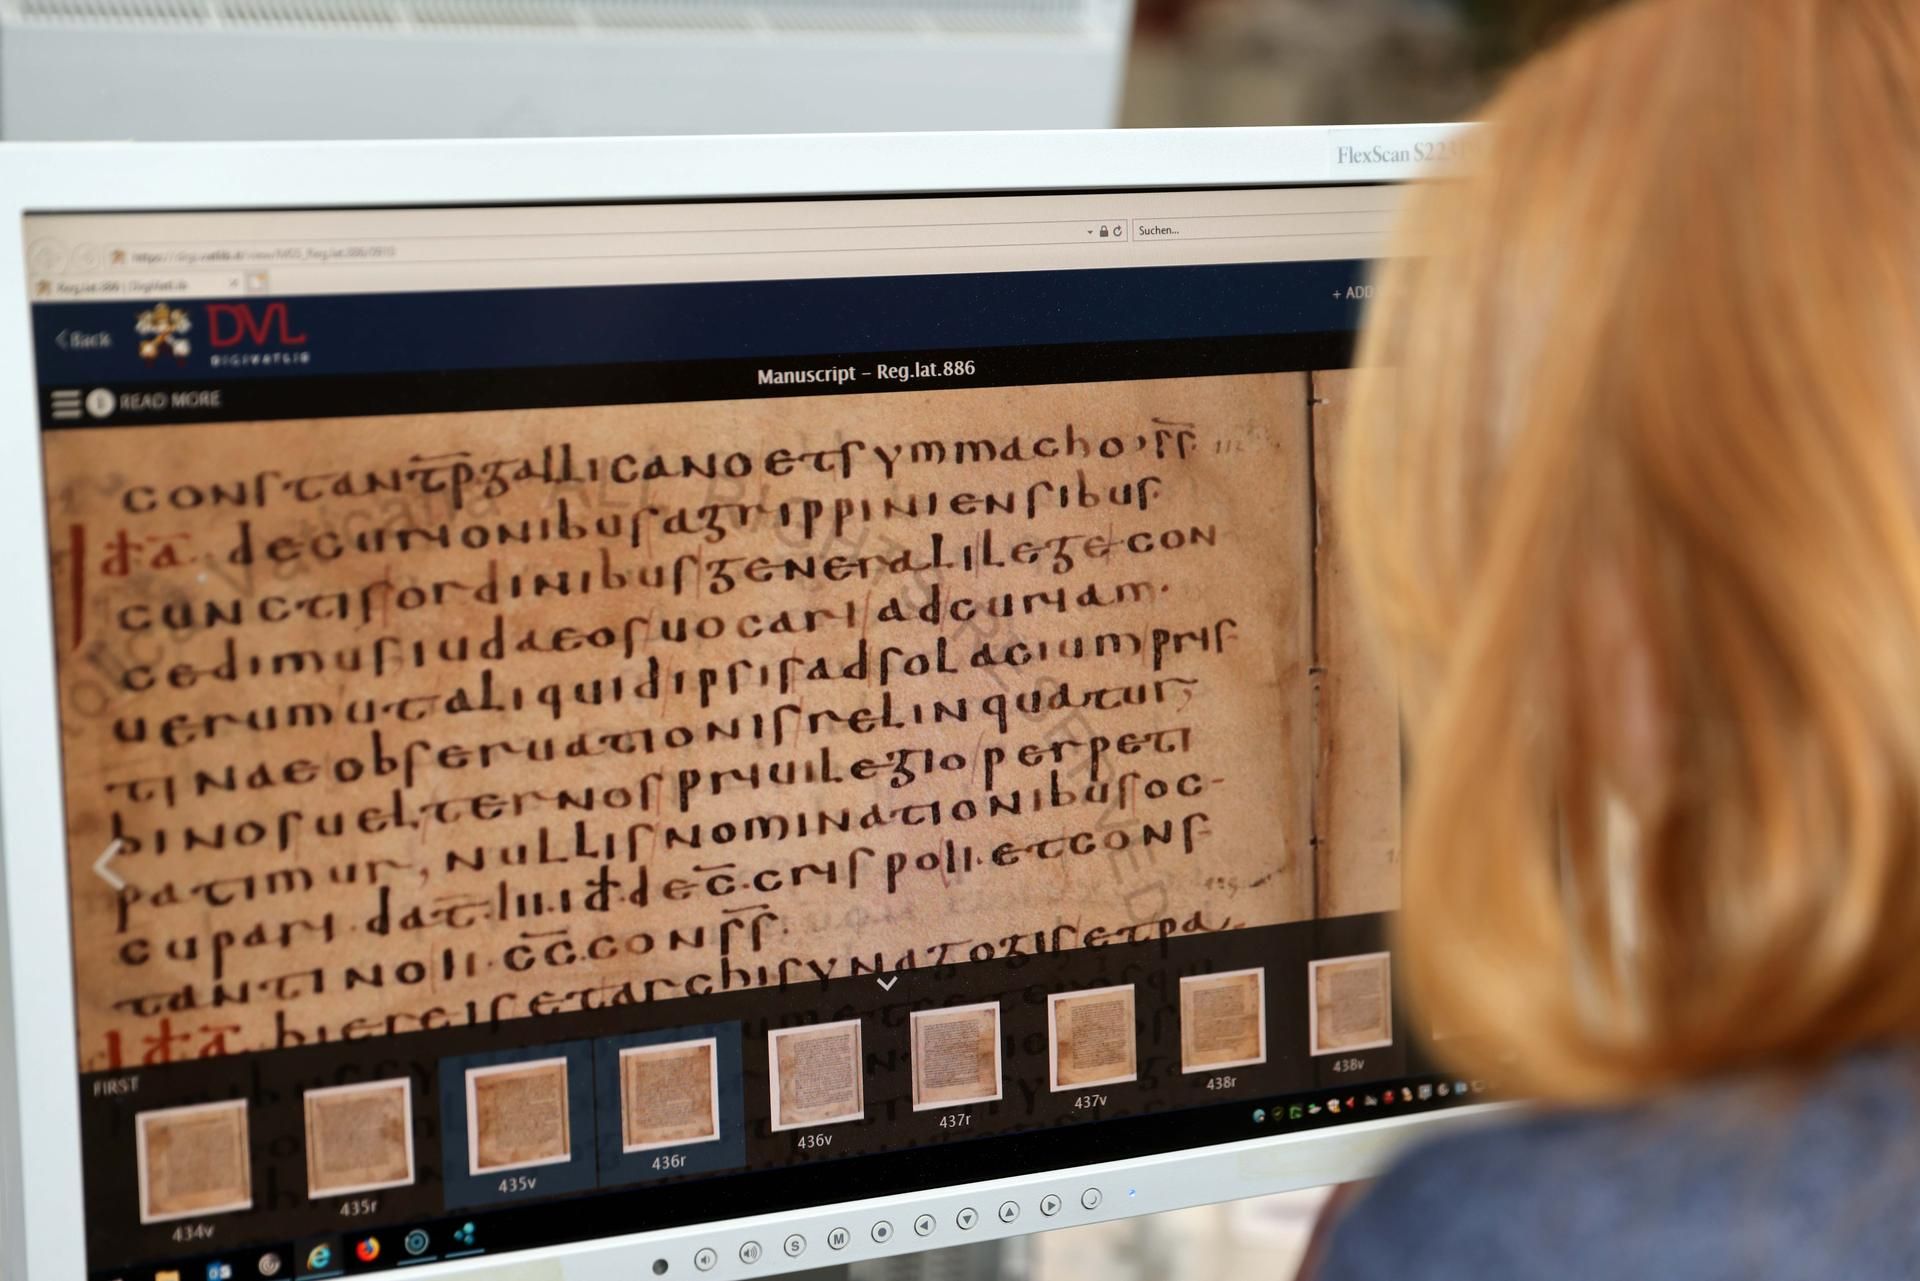 FlexScan S223
Suchen...
https://digi.vatlib.it/view/MSS_Reg.lat.886/0910
Reg.lat.886 | DigiVatLib
+ ADD
< Back
DVL
DIGIVATLIB
Manuscript – Reg.lat.886
READ MORE
conſtant̅p̅gallicanoetſymmacho·ſſ̅
Id̅a̅·decurionibuſagrippinienſibuſ
cunctiſordinibuſgeneralilegecon
cedimuſiudaeoſuocariadcuriam·
uerumutaliquidipſiſadſolaciumpriſ
tinaeobſeruationiſrelinquatur,
binoſuelternoſpriuilegioperpeti
patimur, nulliſnominationibuſoc-
cupari·dat̅·iiiid̅dec̅·criſpoli·etconſ
tantinoii·c̅c̅·conſſ̅·
Id̅a̅ hiereiſetarchiſynagogiſetpa
FIRST
434v
435r
435v
436r
436v
437r
437v
438r
438v
S M